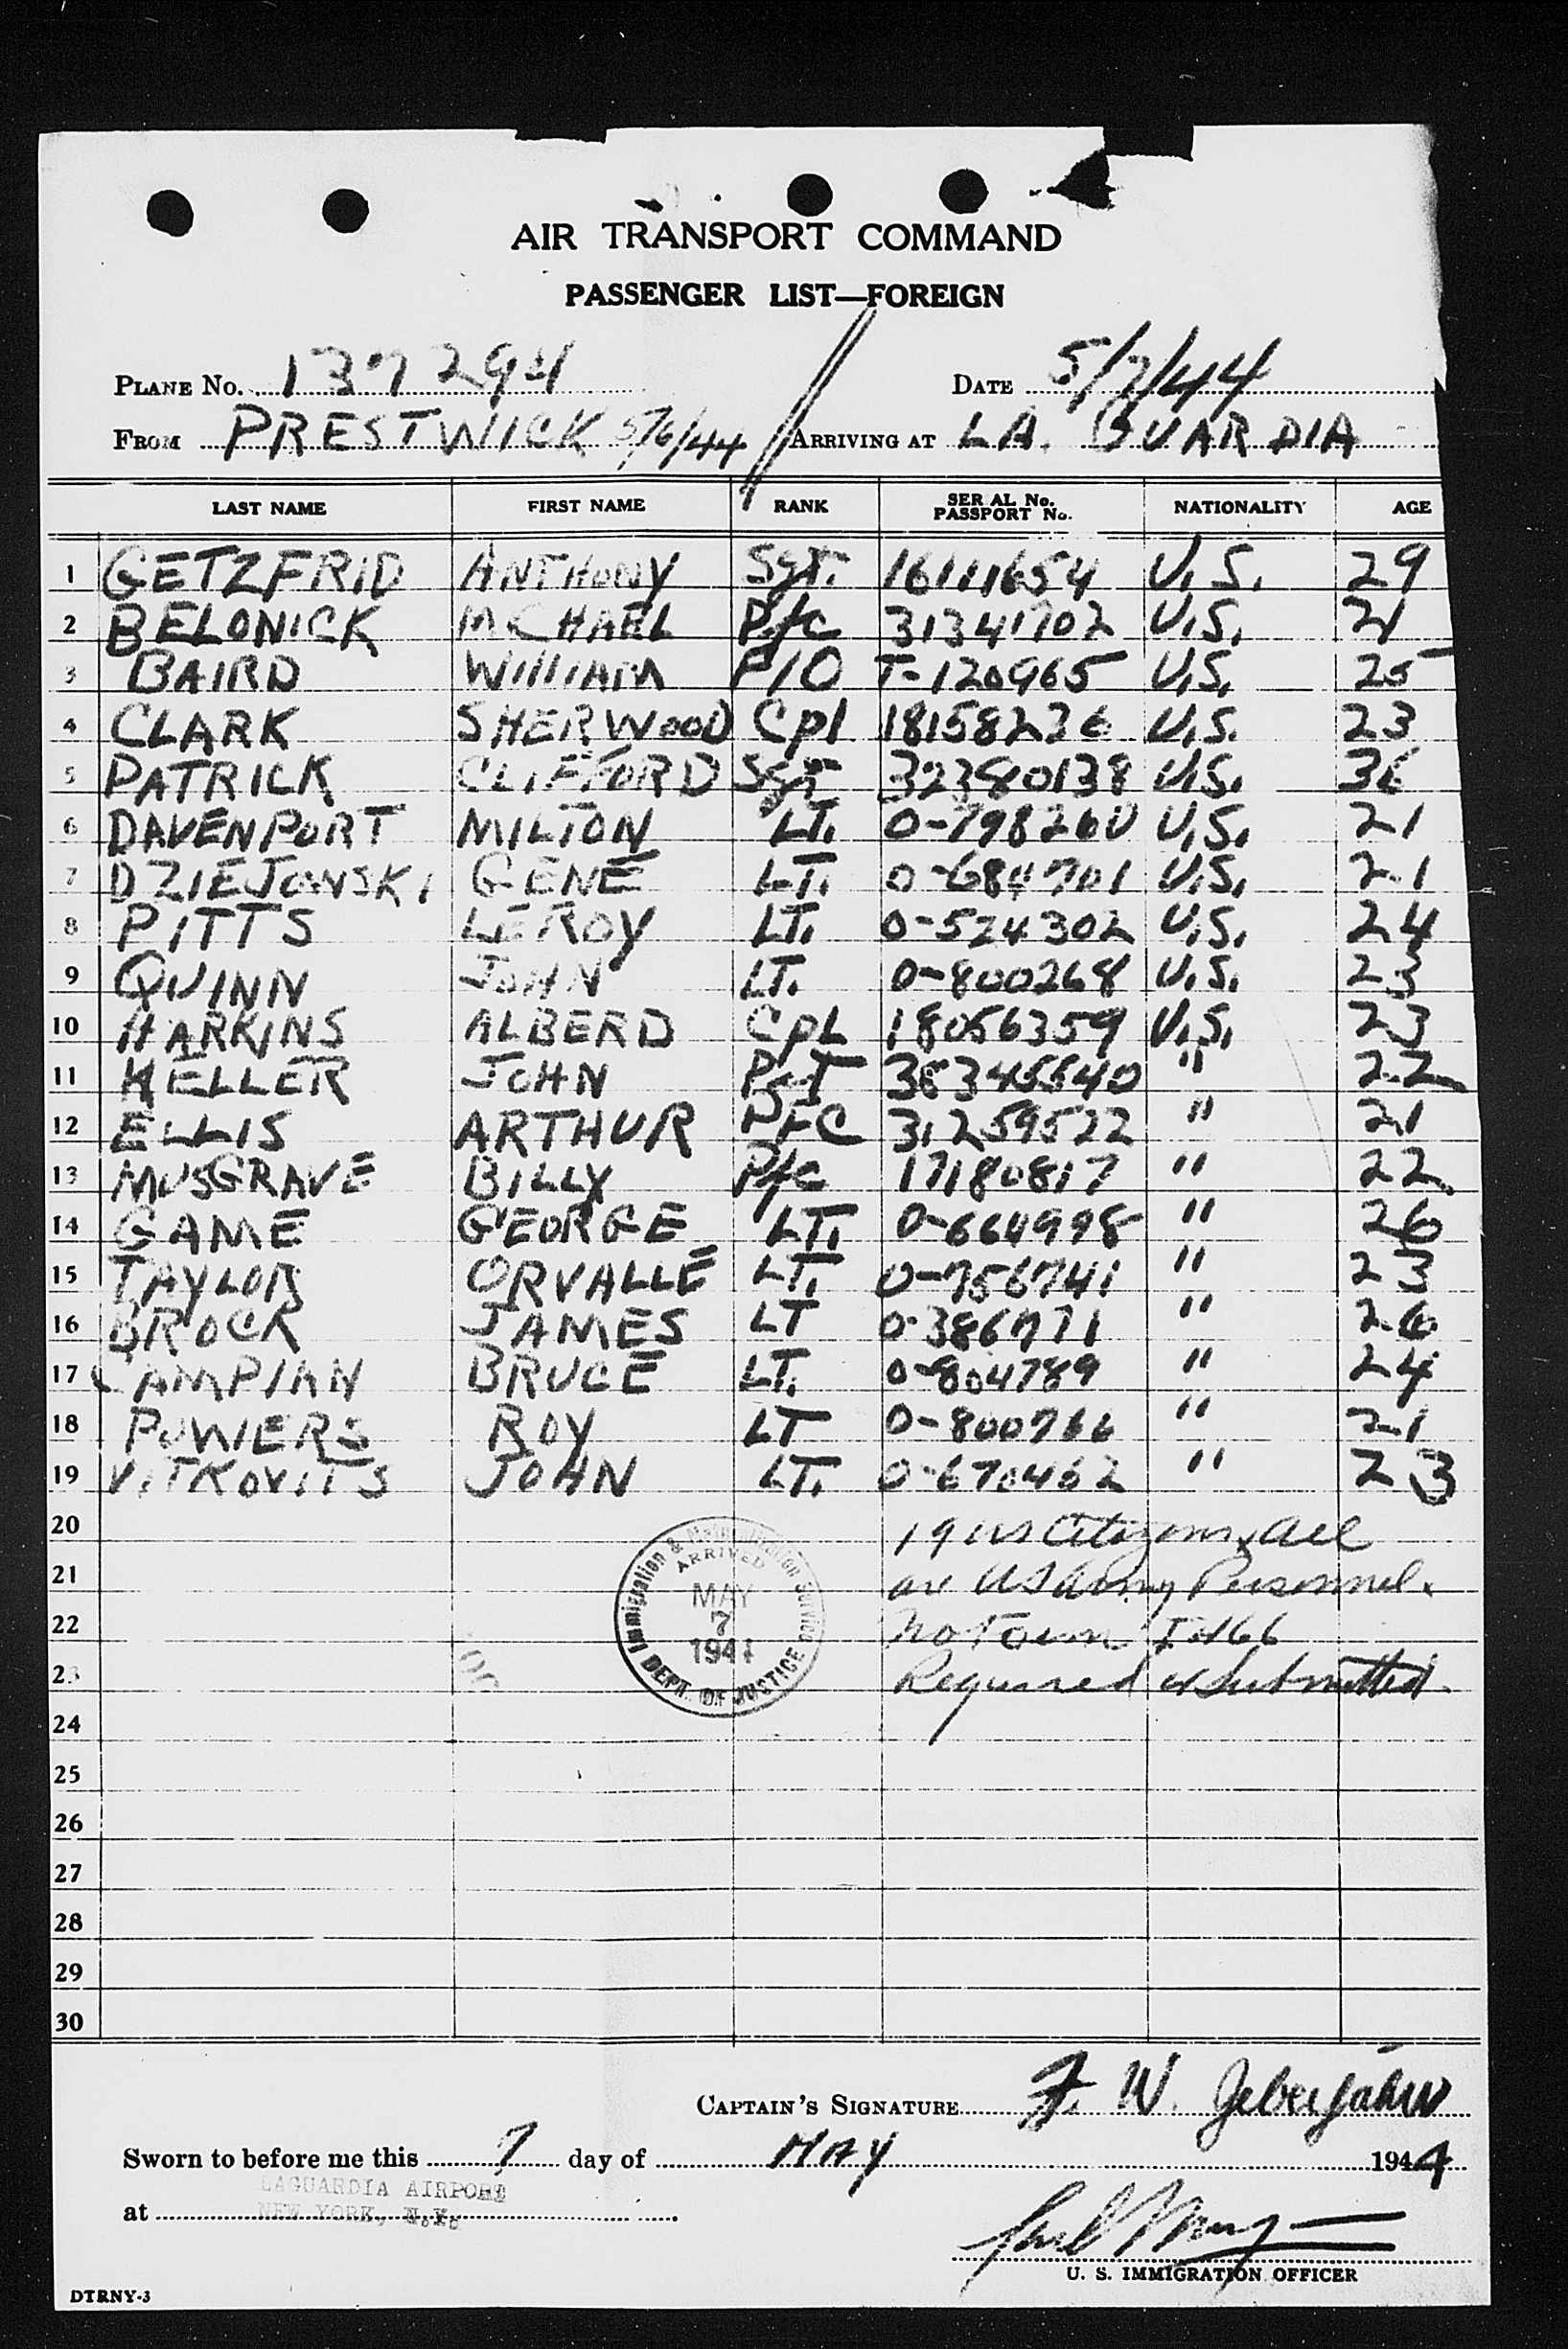 AIR TRANSPORT COMMAND
PASSENGER LIST—FOREIGN
PLANE No. 137294 DATE 5/7/44
FROM PRESTWICK 5/6/44 ARRIVING AT LA. GUARDIA
LAST NAME FIRST NAME RANK SER AL No. PASSPORT No. NATIONALITY AGE
1 GETZFRID ANTHONY Sgt. 16111654 U.S. 29
2 BELONICK MICHAEL Pfc 31341702 U.S. 21
3 BAIRD WILLIAM F/O T-120965 U.S. 25
4 CLARK SHERWOOD Cpl 18158236 U.S. 23
5 PATRICK CLIFFORD Sgt 32380138 U.S. 36
6 DAVENPORT MILTON LT. 0-798260 U.S. 21
7 DZIEJOWSKI GENE LT. 0-684701 U.S. 21
8 PITTS LEROY LT. 0-524302 U.S. 24
9 QUINN JOHN LT. 0-800268 U.S. 23
10 HARKINS ALBERD CpL 18056359 U.S. 23
11 KELLER JOHN PvT " 22
12 ELLIS ARTHUR PFC 31259522 " 21
13 MUSGRAVE BILLY Pfc 17180817 " 22
14 GAME GEORGE LT. 0-664998 " 26
15 TAYLOR ORVALLE LT. 0-756741 " 23
16 BROCK JAMES LT 0-386771 " 26
17 CAMPIAN BRUCE LT. 0-804789 " 24
18 POWERS ROY LT 0-800766 " 21
19 VITKOVITS JOHN LT. 0-670462 " 23
20 19 US Citizens, all
21 are US Army Personnel.
22 No Form I 466
23 Required or Submitted.
24
25
26
27
28
29
30
Immigration & Naturalization Service
ARRIVED
MAY
7
1944
DEPT. OF JUSTICE
CAPTAIN'S SIGNATURE F. W.
Sworn to before me this 7 day of MAY 1944
LAGUARDIA AIRPORT
at NEW YORK, N.Y.
U. S. IMMIGRATION OFFICER
DTRNY-3